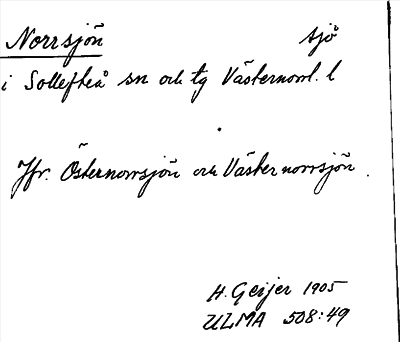 Norrsjön sjö
i Sollefteå sn och tg Västernorrl. l
Jfr. Östernorrsjön och Västernorrsjön.
H. Geijer 1905
ULMA 508:49